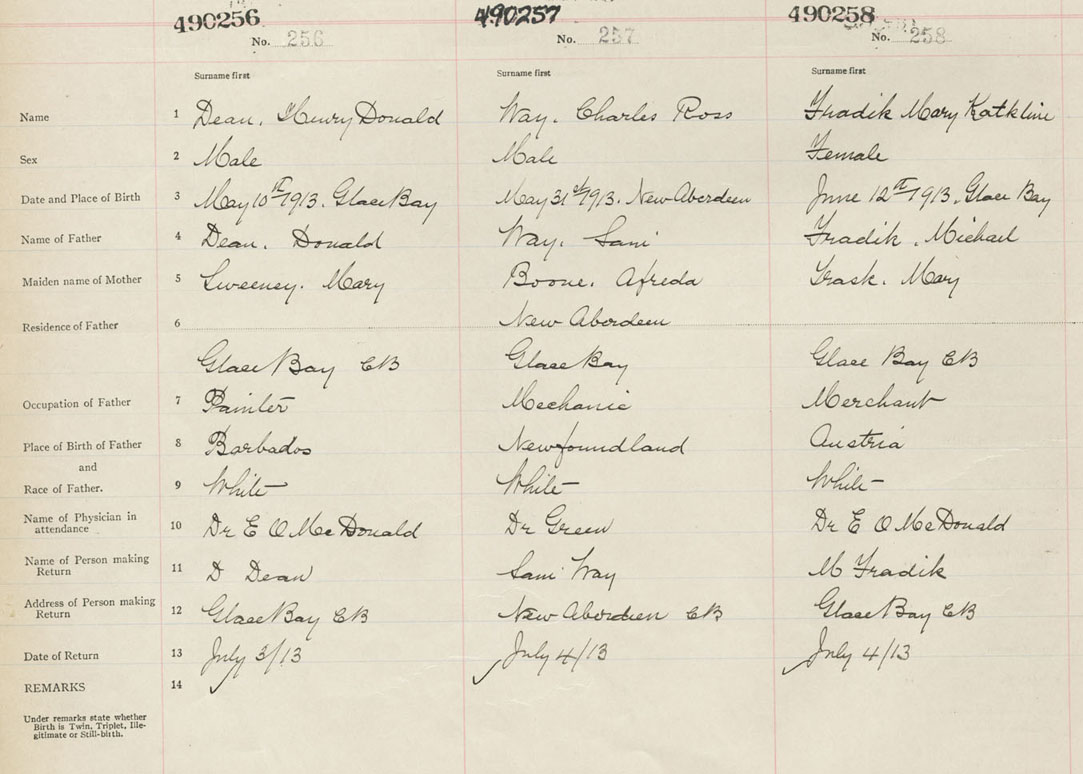 490256 490257 490258
No. 256 No. 257 No. 258
Surname first Surname first Surname first
Name 1 Dean. Henry Donald Way. Charles Ross Fradik Mary Kathline
Sex 2 Male Male Female
Date and Place of Birth 3 May 10th 1913. Glace Bay May 31st 1913. New Aberdeen June 12th 1913. Glace Bay
Name of Father 4 Dean. Donald Way. Sam Fradik. Michael
Maiden name of Mother 5 Sweeney. Mary Boone. Afreda Trask. Mary
Residence of Father 6 New Aberdeen
Glace Bay CB Glace Bay Glace Bay CB
Occupation of Father 7 Painter Mechanic Merchant
Place of Birth of Father 8 Barbados Newfoundland Austria
and
Race of Father. 9 White White White
Name of Physician in
attendance 10 Dr E O McDonald Dr Green Dr E O McDonald
Name of Person making
Return 11 D Dean Sam Way M Fradik
Address of Person making
Return 12 Glace Bay CB New Aberdeen CB Glace Bay CB
Date of Return 13 July 3/13 July 4/13 July 4/13
REMARKS 14
Under remarks state whether
Birth is Twin, Triplet, Ille-
gitimate or Still-birth.